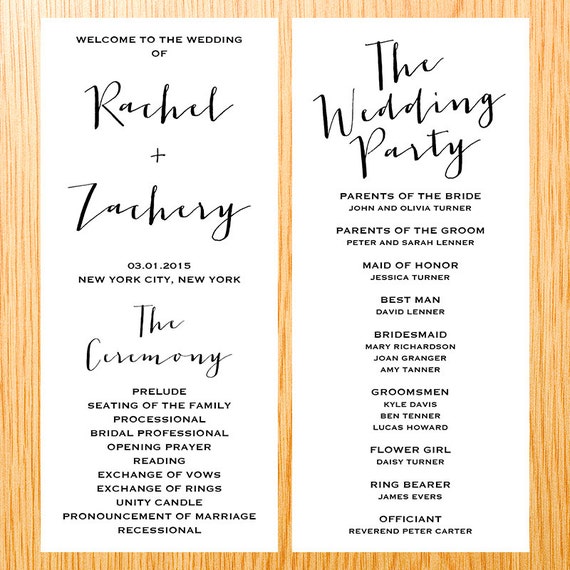 WELCOME TO THE WEDDING
OF
Rachel
+
Zachery
03.01.2015
NEW YORK CITY, NEW YORK
The
Ceremony
PRELUDE
SEATING OF THE FAMILY
PROCESSIONAL
BRIDAL PROFESSIONAL
OPENING PRAYER
READING
EXCHANGE OF VOWS
EXCHANGE OF RINGS
UNITY CANDLE
PRONOUNCEMENT OF MARRIAGE
RECESSIONAL
The
Wedding
Party
PARENTS OF THE BRIDE
JOHN AND OLIVIA TURNER
PARENTS OF THE GROOM
PETER AND SARAH LENNER
MAID OF HONOR
JESSICA TURNER
BEST MAN
DAVID LENNER
BRIDESMAID
MARY RICHARDSON
JOAN GRANGER
AMY TANNER
GROOMSMEN
KYLE DAVIS
BEN TENNER
LUCAS HOWARD
FLOWER GIRL
DAISY TURNER
RING BEARER
JAMES EVERS
OFFICIANT
REVEREND PETER CARTER